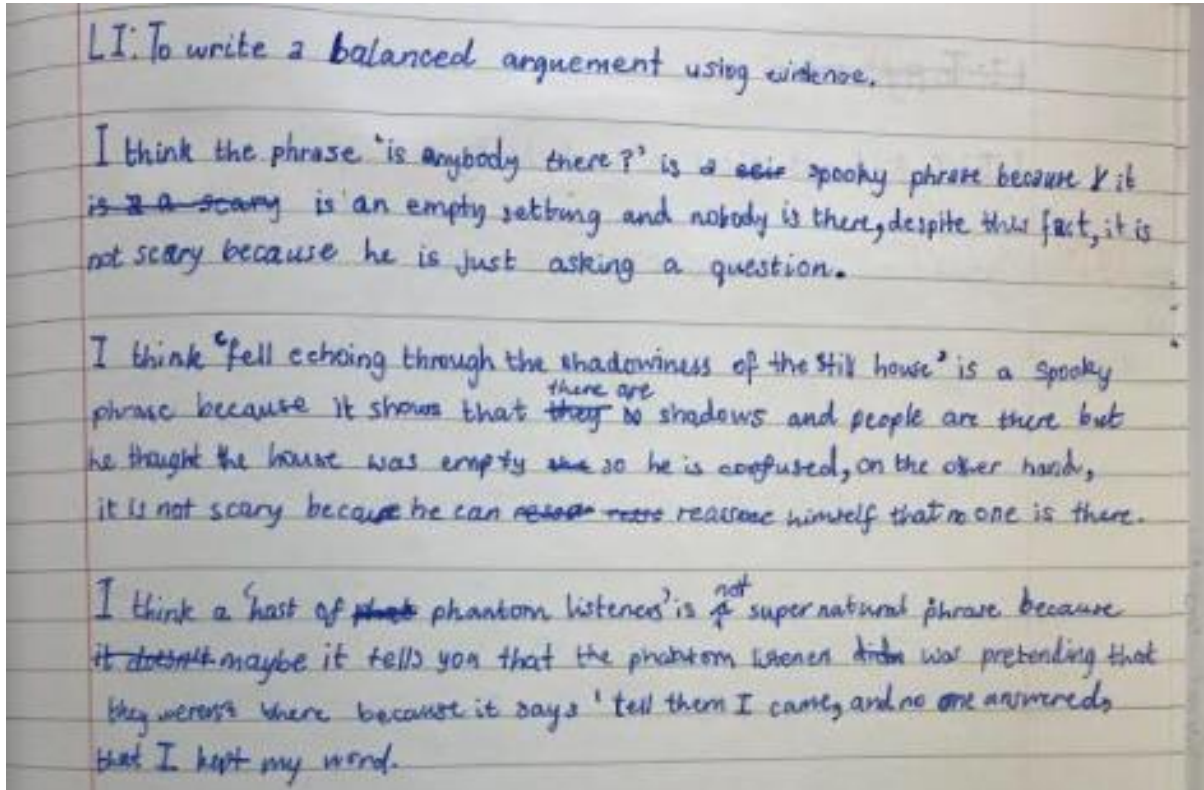 LI: To write a balanced arguement using evidence.
I think the phrase 'is anybody there?' is a spooky phrase because it
is a scary is an empty setting and nobody is there, despite this fact, it is
not scary because he is just asking a question.
I think 'fell echoing through the shadowiness of the still house' is a spooky
there are
phrase because it shows that they shadows and people are there but
he thought the house was empty so he is confused, on the other hand,
it is not scary because he can reassure himself that no one is there.
not
I think a 'host of phantom listeners' is a supernatural phrase because
it doesn't maybe it tells you that the phantom listener didn was pretending that
they weren't there because it says 'tell them I came, and no one answered,
that I kept my word.